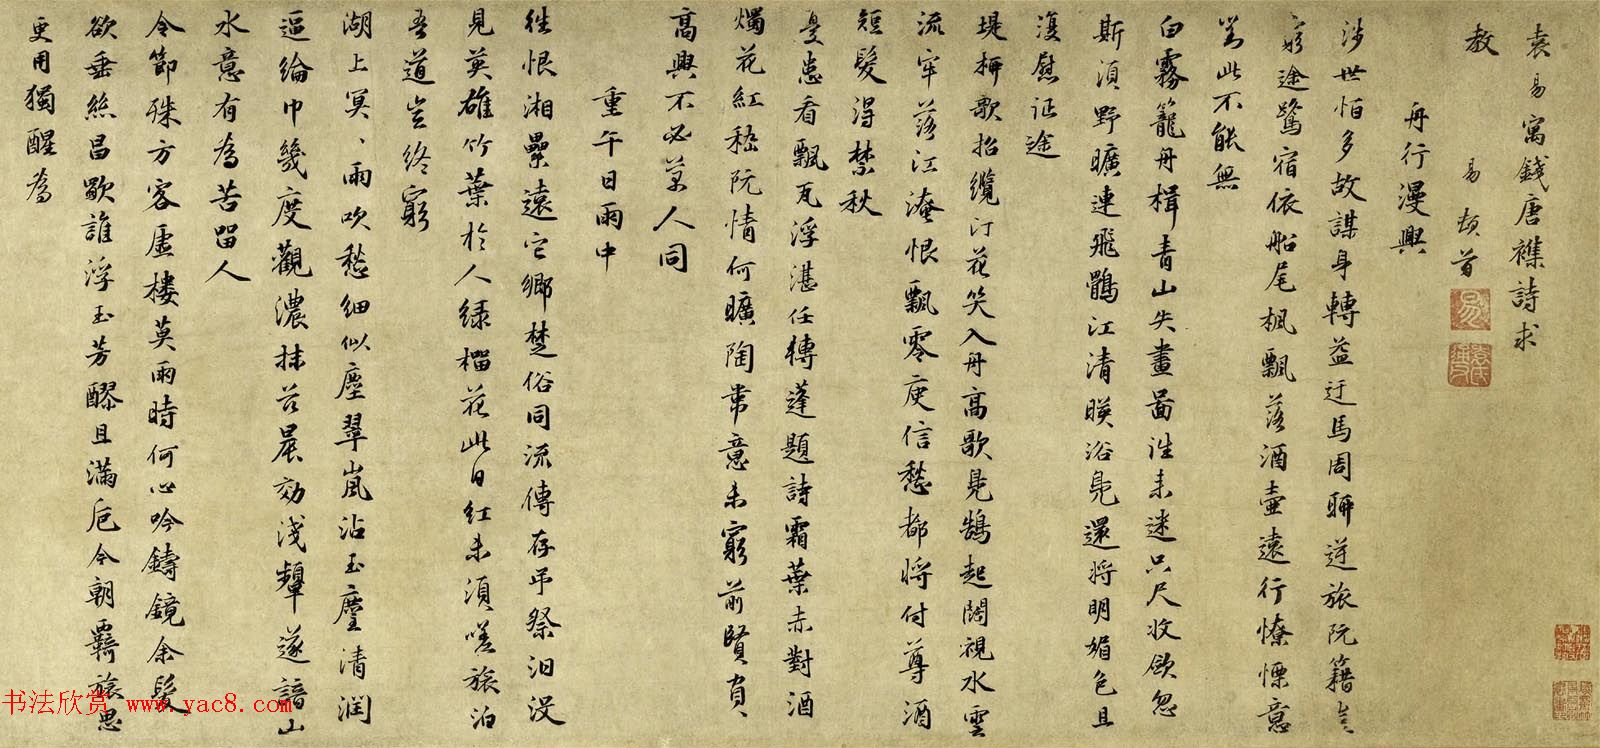 袁易寓錢唐襍詩求
教
易頓首
舟行漫興
涉世怕多故謀身轉益迂馬周聊逆旅阮籍
窮途鷺宿依船尾楓飄落酒壺遠行憭慄意
對此不能無
白霧籠舟楫青山失畫圖津未迷只尺收欲忽
斯須野曠連飛鸛江清暎浴鳧還將明媚色且
復慰征途
堤柳歌招纜汀花笑入舟高歌見鵠起闊視水雲
流牢落江淹恨飄零庾信愁都將付尊酒
短髮得禁秋
憂患看飄瓦浮湛任轉蓬題詩霜葉赤對酒
燭花紅嵇阮情何曠陶常意未窮前賢有
高興不必萬人同
重午日雨中
往恨湘纍遠它鄉楚俗同流傳存弔祭汩沒
見英雄竹葉於人綠榴花此日紅未須嗟旅泊
吾道豈終窮
湖上冥、雨吹愁細似塵翠嵐沾玉麈清潤
逼綸巾幾度觀濃抹茲晨効淺顰遂諳山
水意有為苦留人
令節殊方客虛樓莫雨時何心吟鑄鏡余髮
欲垂絲昌歜誰浮玉芳醪且滿卮今朝羈旅思
更用獨醒為
书法欣赏 www.yac8.com